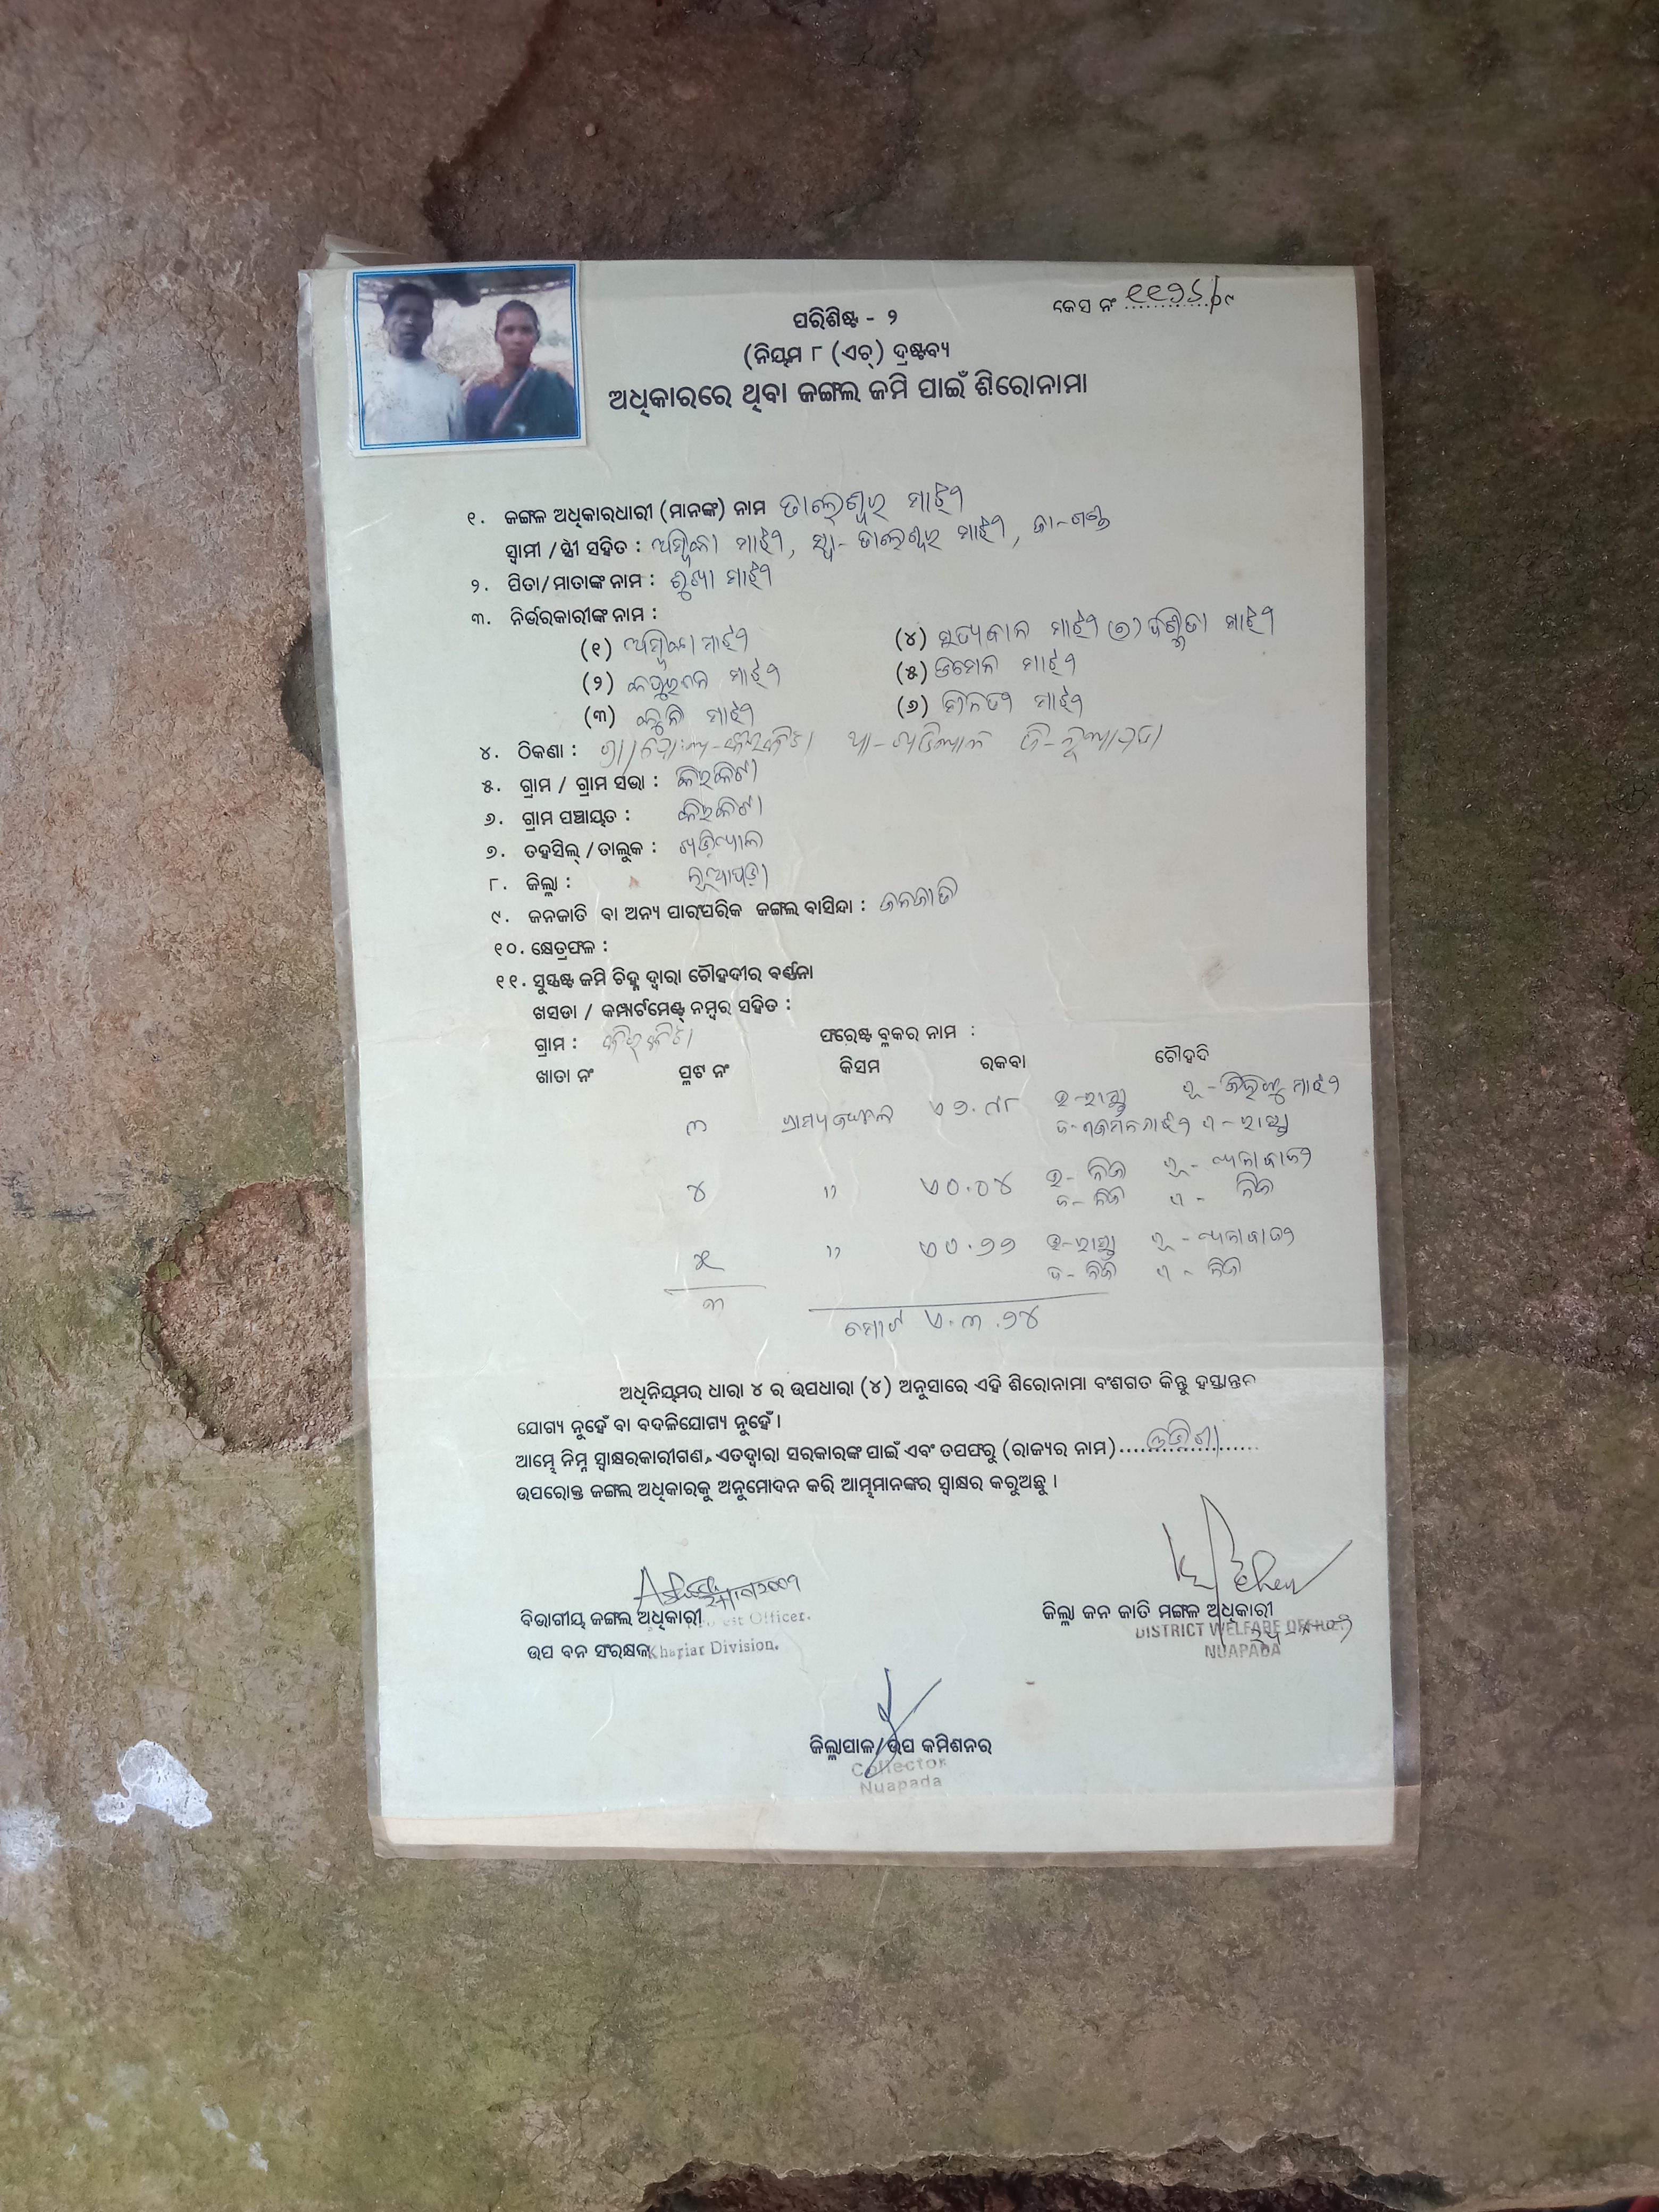 କେସ ନଂ ୧୧୨୬/୦୯
ପରିଶିଷ୍ଟ - ୨
(ନିୟମ ୮ (ଏଚ୍) ଦ୍ରଷ୍ଟବ୍ୟ
ଅଧିକାରରେ ଥିବା ଜଙ୍ଗଲ ଜମି ପାଇଁ ଶିରୋନାମା
୧. ଜଙ୍ଗଳ ଅଧିକାରଧାରୀ (ମାନଙ୍କ) ନାମ ଡାଲେଶ୍ୱର ମାଝୀ
ସ୍ୱାମୀ / ସ୍ତ୍ରୀ ସହିତ : ଅମ୍ବିକା ମାଝୀ, ସ୍ୱା- ଡାଲେଶ୍ୱର ମାଝୀ, ଜା-
୨. ପିତା/ମାତାଙ୍କ ନାମ : ମାଝୀ
୩. ନିର୍ଭରକାରୀଙ୍କ ନାମ :
(୧) ଅମ୍ବିକା ମାଝୀ (୪) ମାଝୀ (୭) ମାଝୀ
(୨) ମାଝୀ (୫) ମାଝୀ
(୩) ମାଝୀ (୬) ମାଝୀ
୪. ଠିକଣା :
୫. ଗ୍ରାମ / ଗ୍ରାମ ସଭା : କିରକିଟା
୬. ଗ୍ରାମ ପଞ୍ଚାୟତ : କିରକିଟା
୭. ତହସିଲ୍ / ତାଲୁକ : ଖଡ଼ିଆଳ
୮. ଜିଲ୍ଲା : ନୂଆପଡ଼ା
୯. ଜନଜାତି ବା ଅନ୍ୟ ପାରଂପରିକ ଜଙ୍ଗଲ ବାସିନ୍ଦା : ଜନଜାତି
୧୦. କ୍ଷେତ୍ରଫଳ :
୧୧. ସୁସ୍ପଷ୍ଟ ଜମି ଚିହ୍ନ ଦ୍ୱାରା ଚୌହଦୀର ବର୍ଣ୍ଣନା
ଖସଡା / କମ୍ପାର୍ଟମେଣ୍ଟ୍ ନମ୍ବର ସହିତ :
ଗ୍ରାମ : କିରକିଟା ଫରେଷ୍ଟ ବ୍ଳକର ନାମ :
ଖାତା ନଂ ପ୍ଳଟ ନଂ କିସମ ରକବା ଚୌହଦି
୩ ଗ୍ରାମ୍ୟ ଜଙ୍ଗଲ ଏ ୨.୯୮ ଉ-ରାସ୍ତା ପୂ- ମାଝୀ
ପ - ରାସ୍ତା
୪ " ଏ ୦.୦୪ ଉ- ନିଜ ପୂ-
ଦ- ନିଜ ପ - ନିଜ
୫ " ଏ ୦.୨୨ ଉ-ରାସ୍ତା ପୂ-
ଦ- ନିଜ ପ - ନିଜ
୩ ମୋଟ ଏ.୩.୨୪
ଅଧିନିୟମର ଧାରା ୪ ର ଉପଧାରା (୪) ଅନୁସାରେ ଏହି ଶିରୋନାମା ବଂଶଗତ କିନ୍ତୁ ହସ୍ତାନ୍ତର
ଯୋଗ୍ୟ ନୁହେଁ ବା ବଦଳିଯୋଗ୍ୟ ନୁହେଁ ।
ଆମ୍ଭେ ନିମ୍ନ ସ୍ୱାକ୍ଷରକାରୀଗଣ, ଏତଦ୍ୱାରା ସରକାରଙ୍କ ପାଇଁ ଏବଂ ତପଫରୁ (ରାଜ୍ୟର ନାମ) ଓଡ଼ିଶା
ଉପରୋକ୍ତ ଜଙ୍ଗଲ ଅଧିକାରକୁ ଅନୁମୋଦନ କରି ଆମ୍ଭମାନଙ୍କର ସ୍ୱାକ୍ଷର କରୁଅଛୁ ।
ବିଭାଗୀୟ ଜଙ୍ଗଲ ଅଧିକାରୀ Officer.
ଉପ ବନ ସଂରକ୍ଷକ Khariar Division.
ଜିଲ୍ଲା ଜନ ଜାତି ମଙ୍ଗଳ ଅଧିକାରୀ
DISTRICT WELFARE OFFICER
NUAPADA
ଜିଲ୍ଳାପାଳ/ଉପ କମିଶନର
Collector
Nuapada